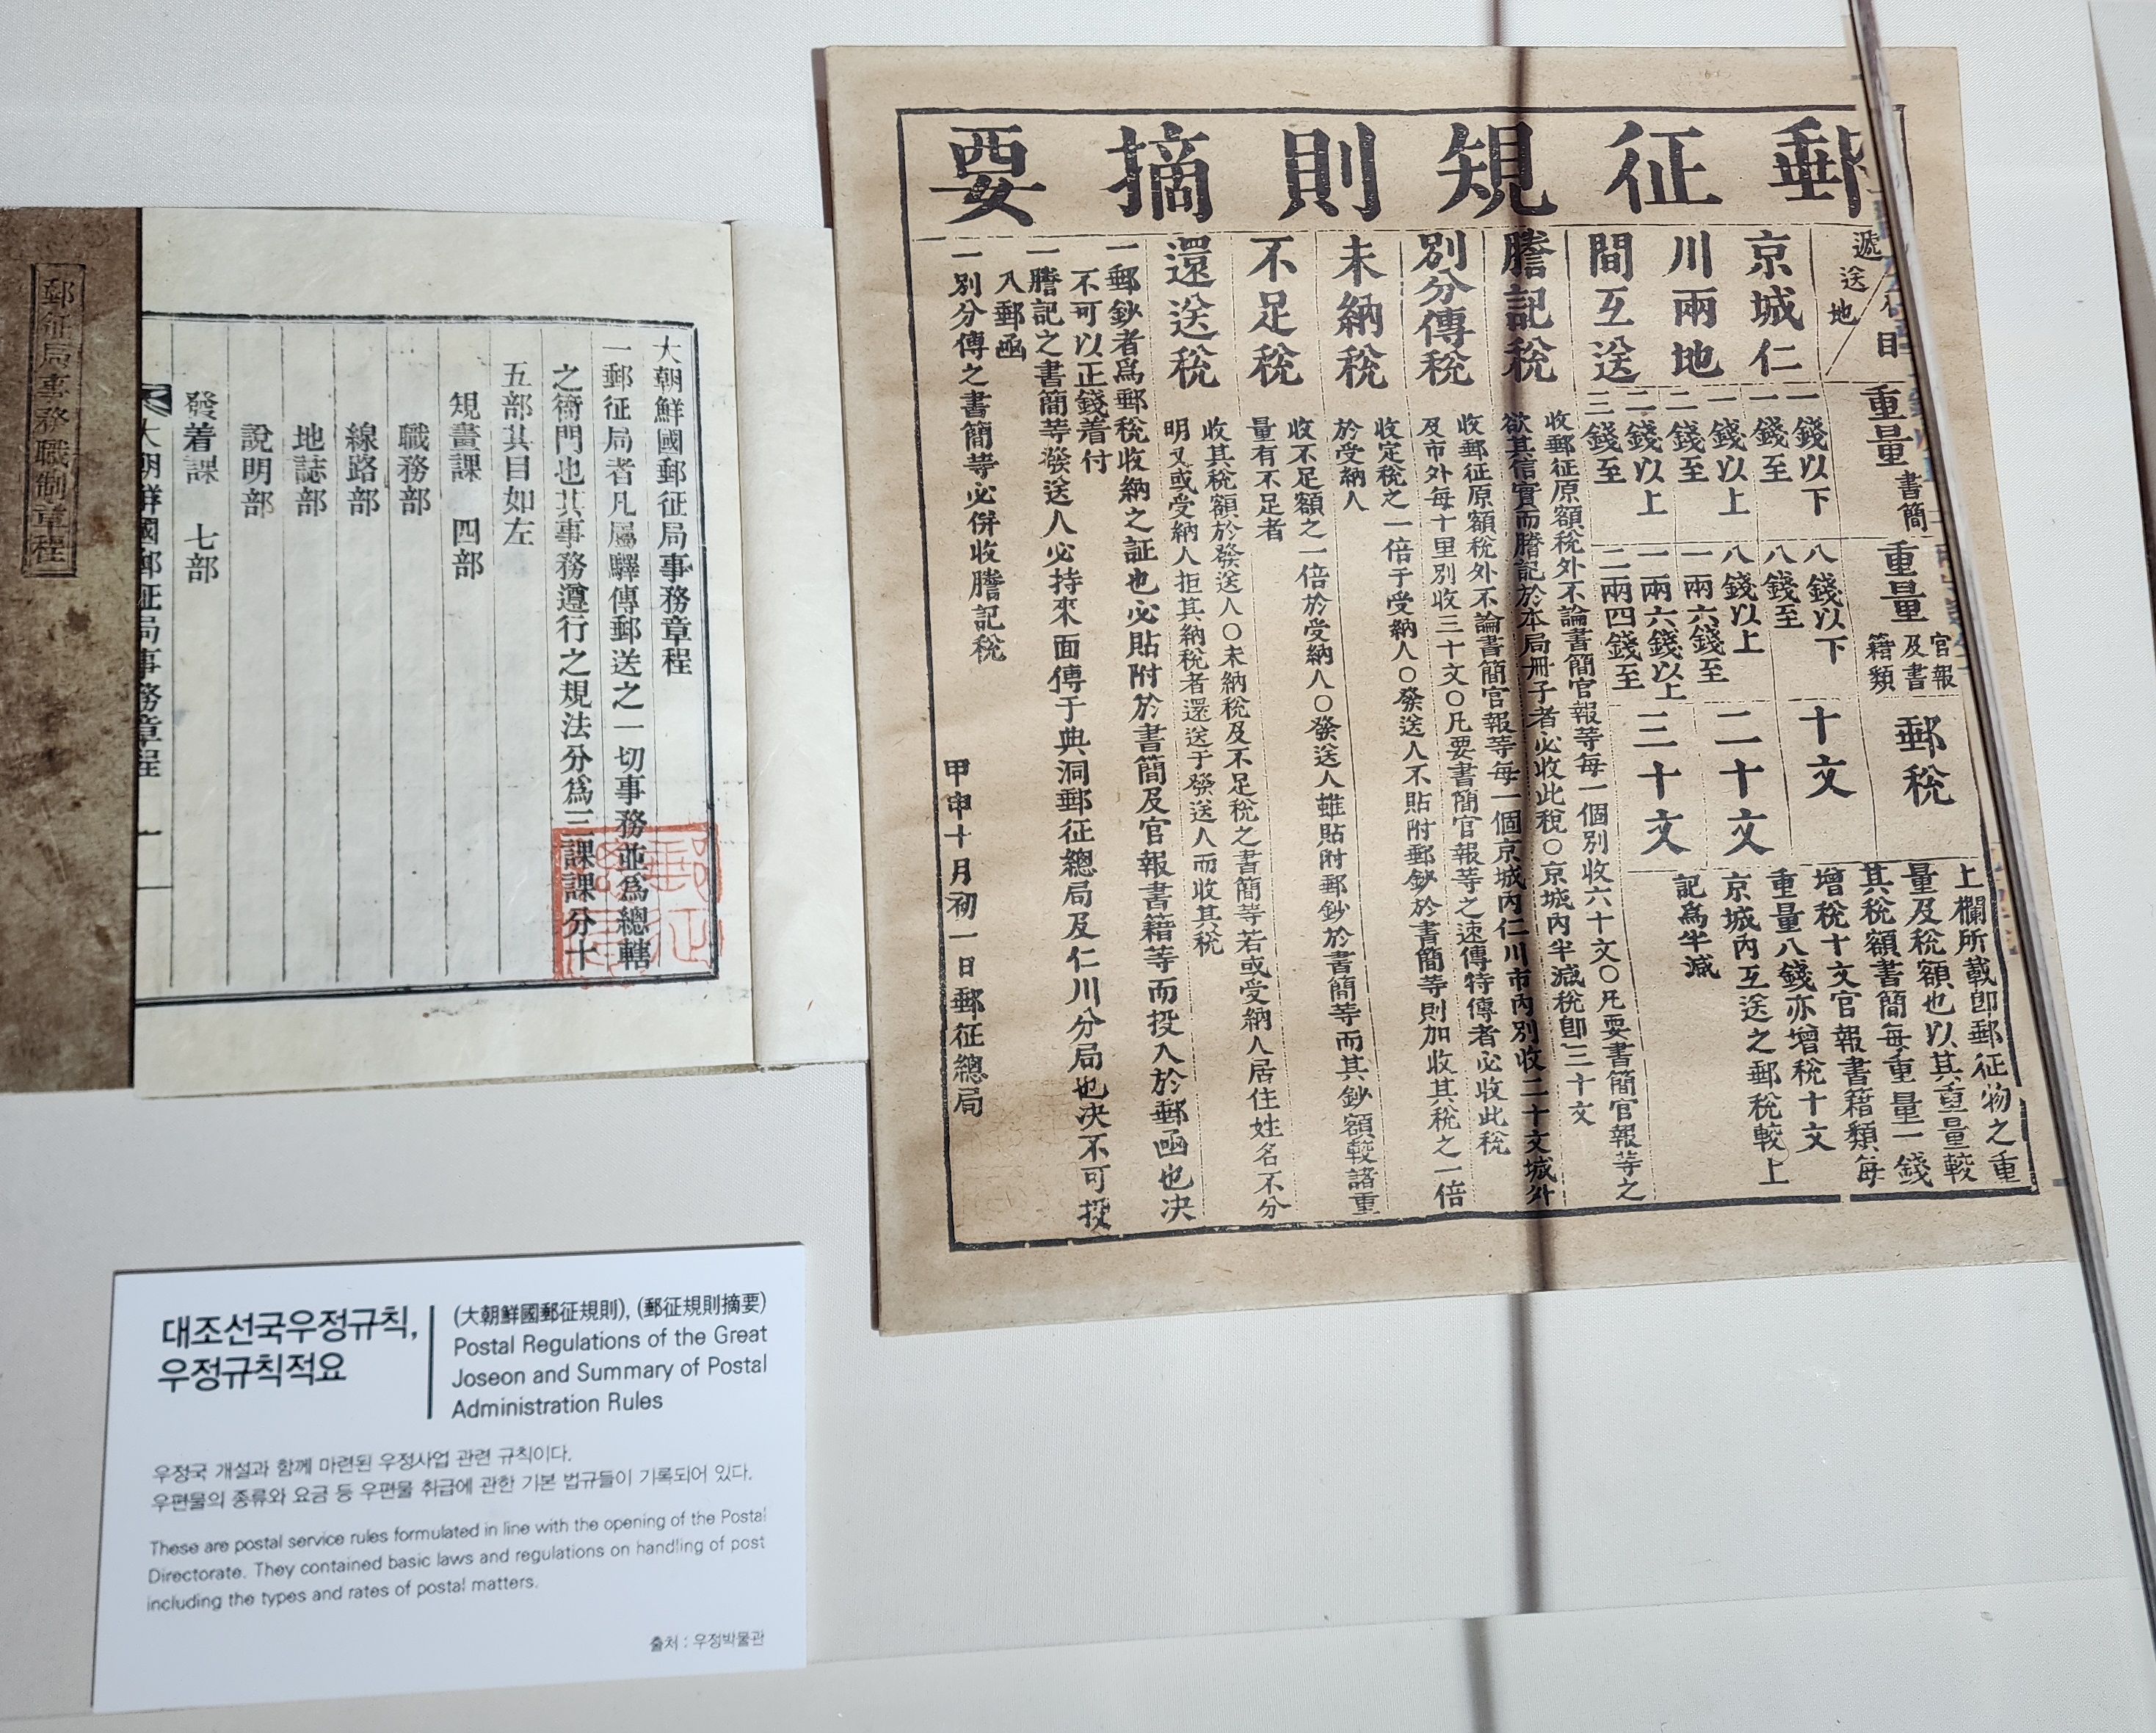 郵征局事務職制章程
大朝鮮國郵征局事務章程
一郵征局者凡屬驛傳郵送之一切事務並爲總轄
之衙門也其事務遵行之規法分爲三課課分十
五部其目如左
規畫課 四部
職務部
線路部
地誌部
說明部
發着課 七部
大朝鮮國郵征局事務章程 一
郵征規則摘要
遞送地
目
重量 書簡
重量 官報及書籍類
郵稅
京城仁
川兩地
間互送
一錢以下
一錢至
一錢以上
二錢至
二錢以上
三錢至
八錢以下
八錢至
八錢以上
一兩六錢至
一兩六錢以上
二兩四錢至
十文
二十文
三十文
上欄所載卽郵征物之重
量及稅額也以其重量較
其稅額書簡每重量一錢
增稅十文官報書籍類每
重量八錢亦增稅十文
京城內互送之郵稅較上
記爲半減
謄記稅
收郵征原額稅外不論書簡官報等每一個別收六十文○凡要書簡官報等之
欲其信實而謄記於本局冊子者必收此稅○京城內半減稅卽三十文
別分傳稅
收郵征原額稅外不論書簡官報等每一個京城內仁川市內別收二十文城外
及市外每十里別收三十文○凡要書簡官報等之速傳特傳者必收此稅
未納稅
收定稅之一倍于受納人○發送人不貼附郵鈔於書簡等則加收其稅之一倍
於受納人
不足稅
收不足額之一倍於受納人○發送人雖貼附郵鈔於書簡等而其鈔額較諸重
量有不足者
還送稅
收其稅額於發送人○未納稅及不足稅之書簡等若或受納人居住姓名不分
明又或受納人拒其納稅者還送于發送人而收其稅
一郵鈔者爲郵稅收納之証也必貼附於書簡及官報書籍等而投入於郵函也決
不可以正錢着付
一謄記之書簡等發送人必持來面傳于典洞郵征總局及仁川分局也決不可投
入郵函
一別分傳之書簡等必併收謄記稅
甲申十月初一日郵征總局
대조선국우정규칙,
우정규칙적요
(大朝鮮國郵征規則), (郵征規則摘要)
Postal Regulations of the Great
Joseon and Summary of Postal
Administration Rules
우정국 개설과 함께 마련된 우정사업 관련 규칙이다.
우편물의 종류와 요금 등 우편물 취급에 관한 기본 법규들이 기록되어 있다.
These are postal service rules formulated in line with the opening of the Postal
Directorate. They contained basic laws and regulations on handling of post
including the types and rates of postal matters.
출처 : 우정박물관